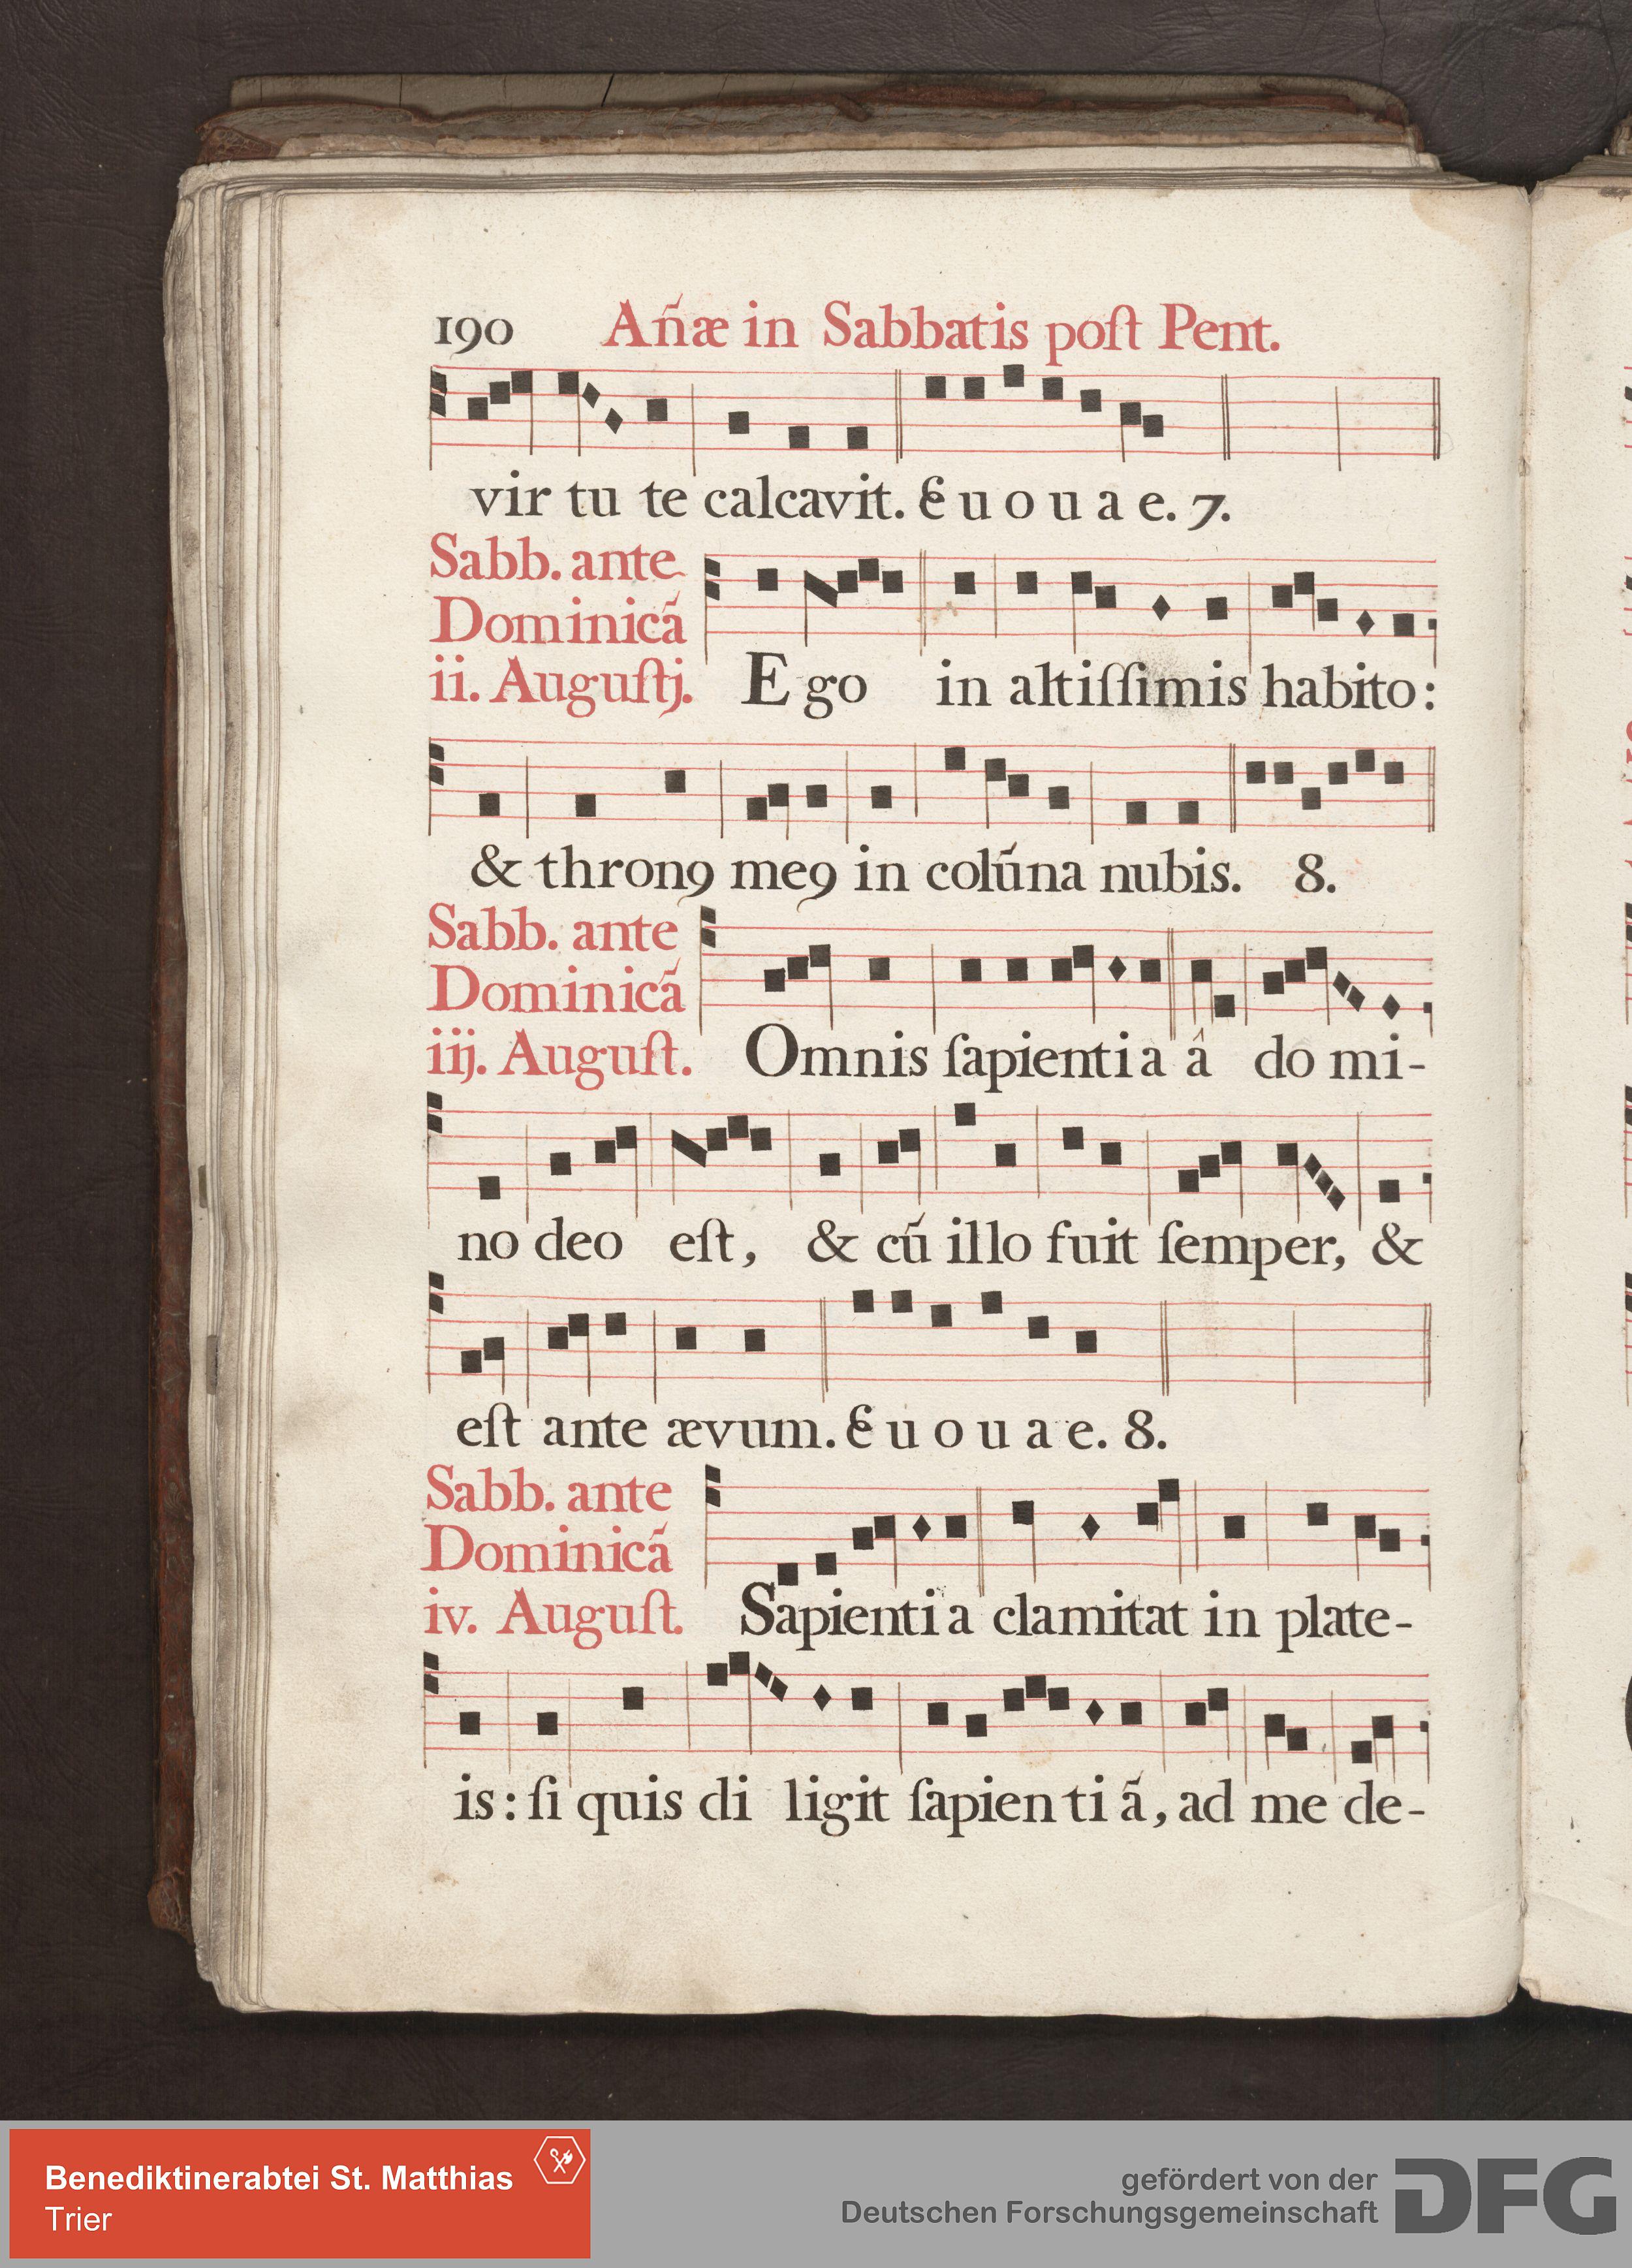 190 Añæ in Sabbatis poſt Pent.
vir tu te calcavit. E u o u a e. 7.
Sabb. ante
Dominicã
ii. Auguſtj.
E go in altiſſimis habito:
& thronꝯ meꝯ in colūna nubis. 8.
Sabb. ante
Dominicã
iij. Auguſt.
Omnis ſapienti a â do mi-
no deo eſt, & cū illo fuit ſemper, &
eſt ante ævum. E u o u a e. 8.
Sabb. ante
Dominicã
iv. Auguſt.
Sapienti a clamitat in plate-
is: ſi quis di ligit ſapien ti ã, ad me de-
Benediktinerabtei St. Matthias
Trier
gefördert von der
Deutschen Forschungsgemeinschaft
DFG